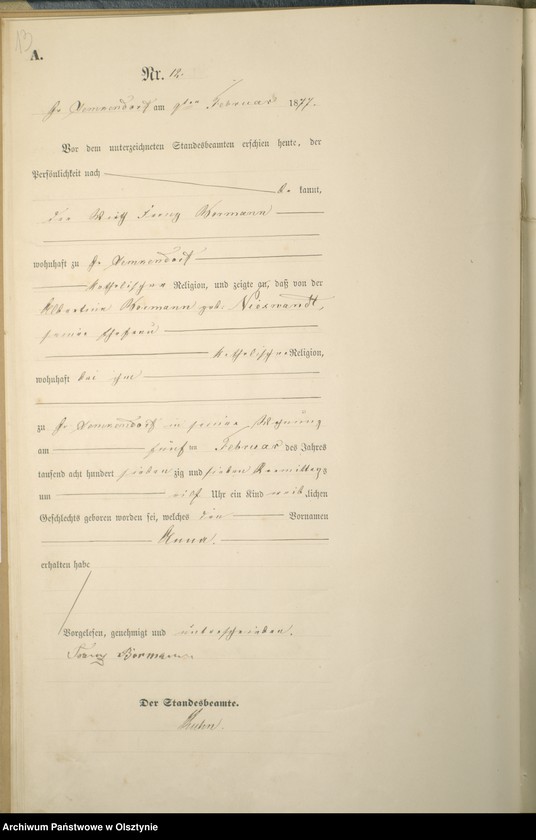 A.
Nr. 12.
am 9ten Februar 1877.
Vor dem unterzeichneten Standesbeamten erschien heute, der
Persönlichkeit nach
be kannt,
der Wirth Franz Bormann
wohnhaft zu
katholischer Religion, und zeigte an, daß von der
Albertine Bormann geb. Nierswandt,
seiner Ehefrau
katholischer Religion,
wohnhaft bei ihm
zu in seiner Wohnung
am fünften Februar des Jahres
tausend acht hundert sieben zig und sieben Vormittags
um elf Uhr ein Kind weib lichen
Geschlechts geboren worden sei, welches den Vornamen
Anna.
erhalten habe
Vorgelesen, genehmigt und unterschrieben.
Franz Bormann
Der Standesbeamte.
Archiwum Państwowe w Olsztynie